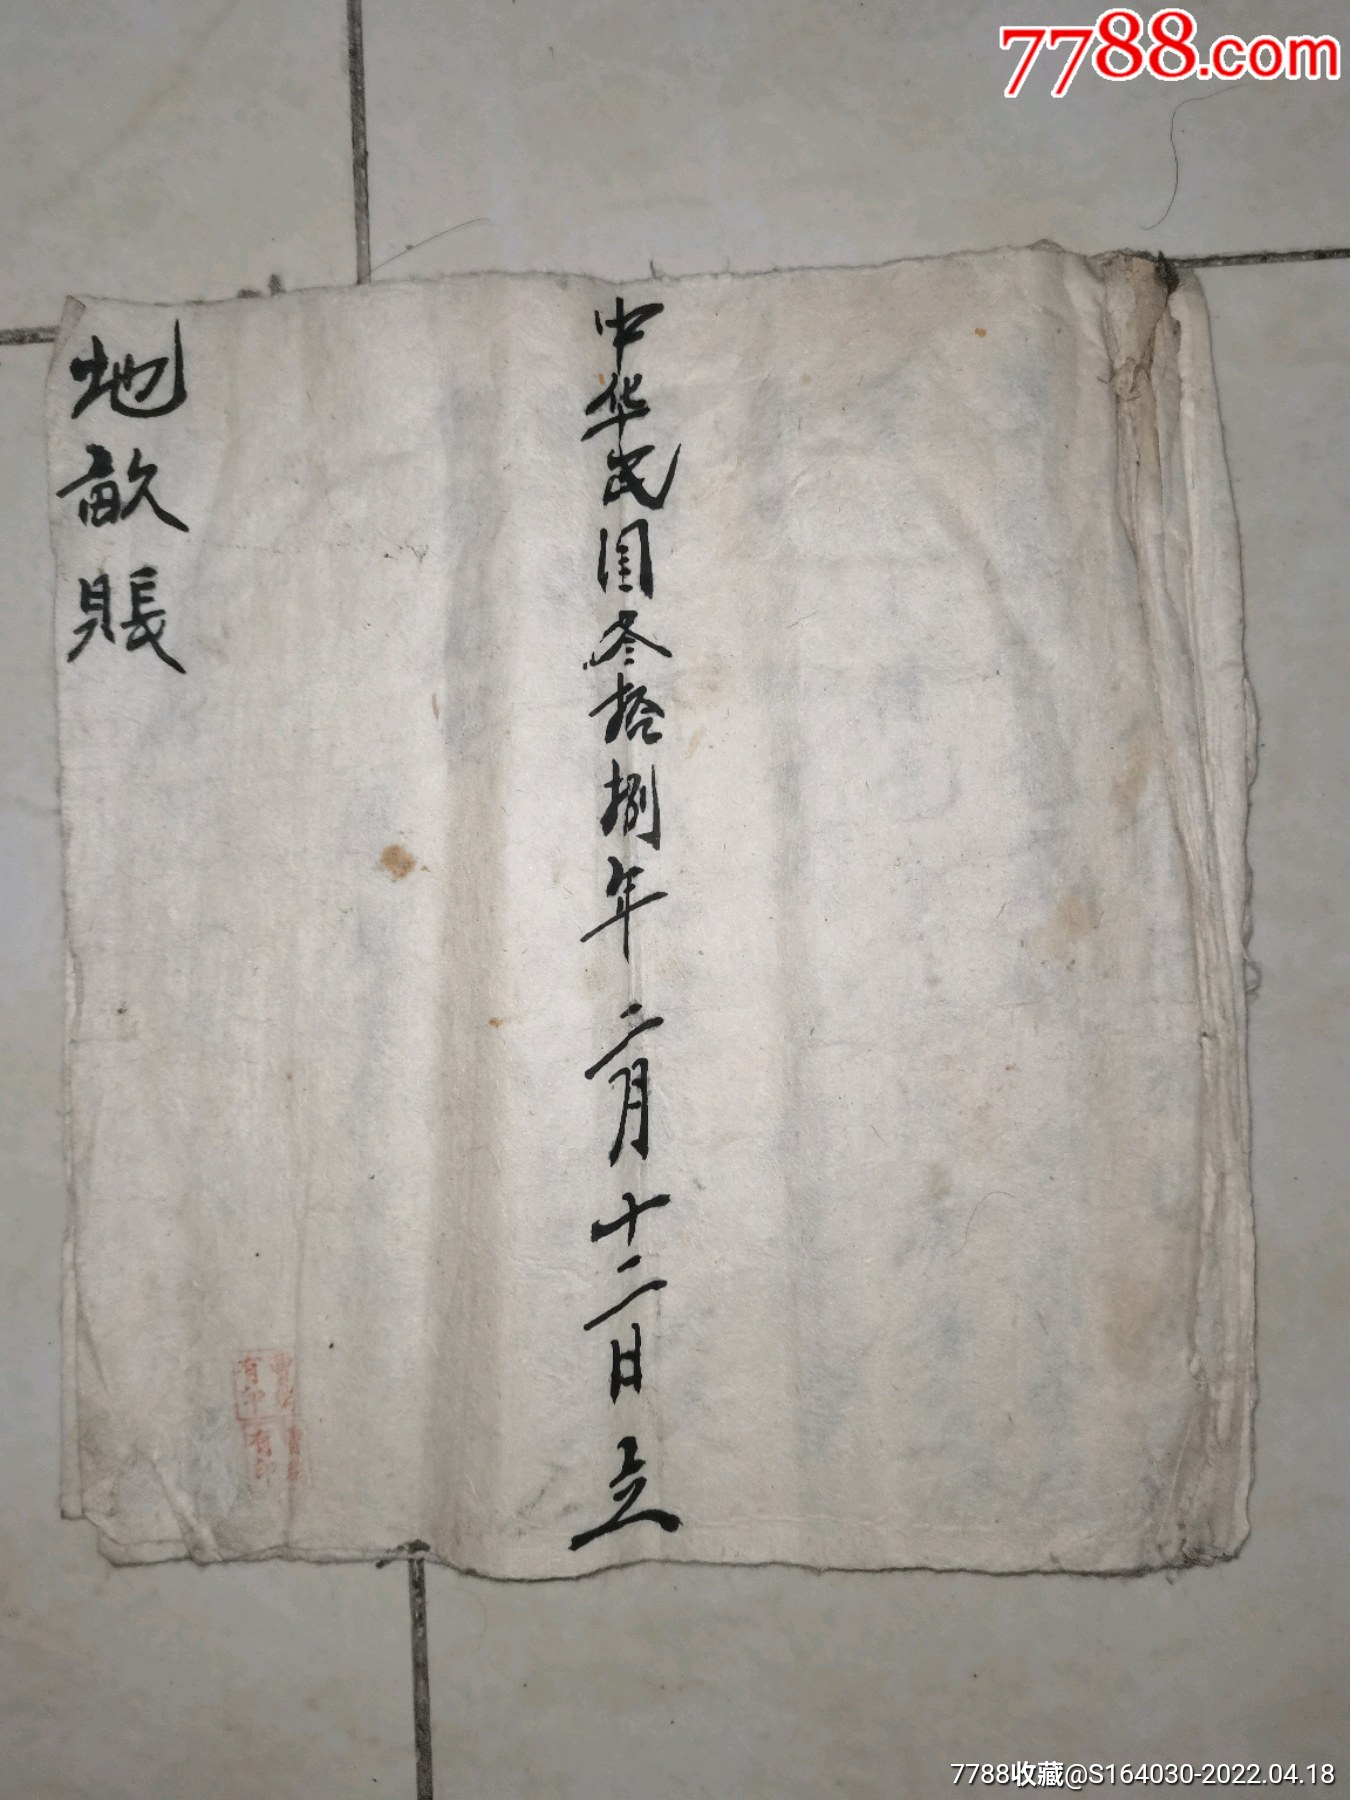 7788.com
中华民国叁拾捌年二月十二日立
地畝賬
有印
有印
7788收藏@S164030-2022.04.18